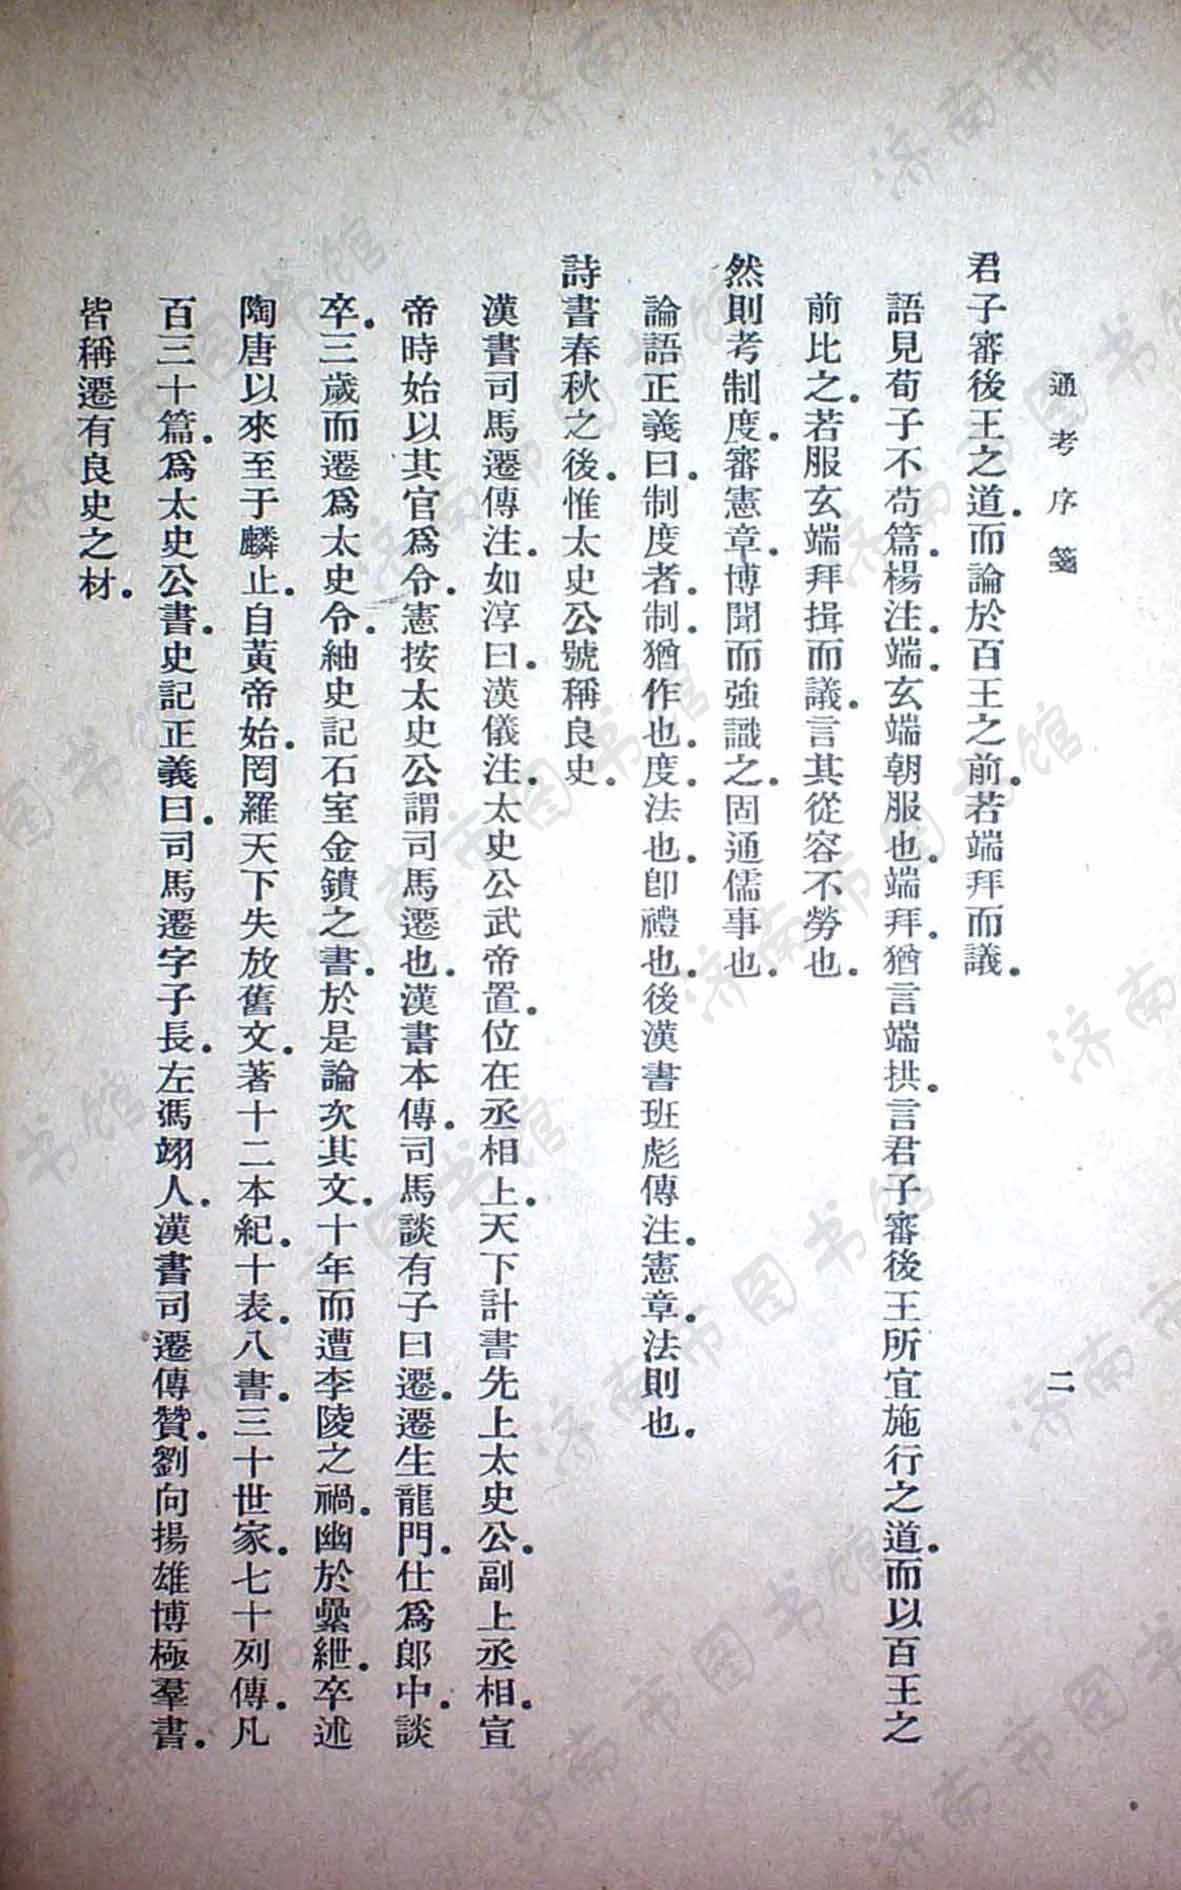 通考序箋 二
君子審後王之道。而論於百王之前。若端拜而議。
語見荀子不苟篇。楊注。端。玄端朝服也。端拜。猶言端拱。言君子審後王所宜施行之道。而以百王之
前比之。若服玄端拜揖而議。言其從容不勞也。
然則考制度。審憲章。博聞而強識之。固通儒事也。
論語正義曰。制度者。制。猶作也。度。法也。卽禮也。後漢書班彪傳注。憲章。法則也。
詩書春秋之後。惟太史公號稱良史。
漢書司馬遷傳注。如淳曰。漢儀注。太史公武帝置。位在丞相上。天下計書先上太史公。副上丞相。宣
帝時始以其官爲令。憲按太史公謂司馬遷也。漢書本傳。司馬談有子曰遷。遷生龍門。仕爲郎中。談
卒。三歲而遷爲太史令。紬史記石室金鐀之書。於是論次其文。十年而遭李陵之禍。幽於纍紲。卒述
陶唐以來至于麟止。自黃帝始。罔羅天下失放舊文。著十二本紀。十表。八書。三十世家。七十列傳。凡
百三十篇。爲太史公書。史記正義曰。司馬遷字子長。左馮翊人。漢書司遷傳贊。劉向揚雄博極羣書。
皆稱遷有良史之材。
济南市图书馆